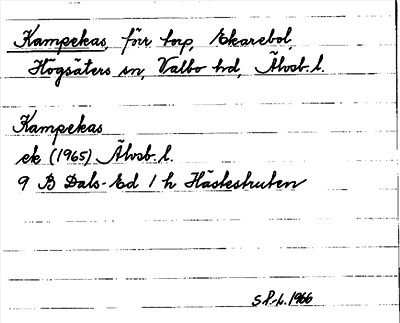 Kampekas, förr torp, Ekarebol,
Högsäters sn, Valbo hd, Älvsb. l.
Kampekas
ek (1965) Älvsb. l.
9 B Dals-Ed 1 h Hästestruten
S.P-L. 1966